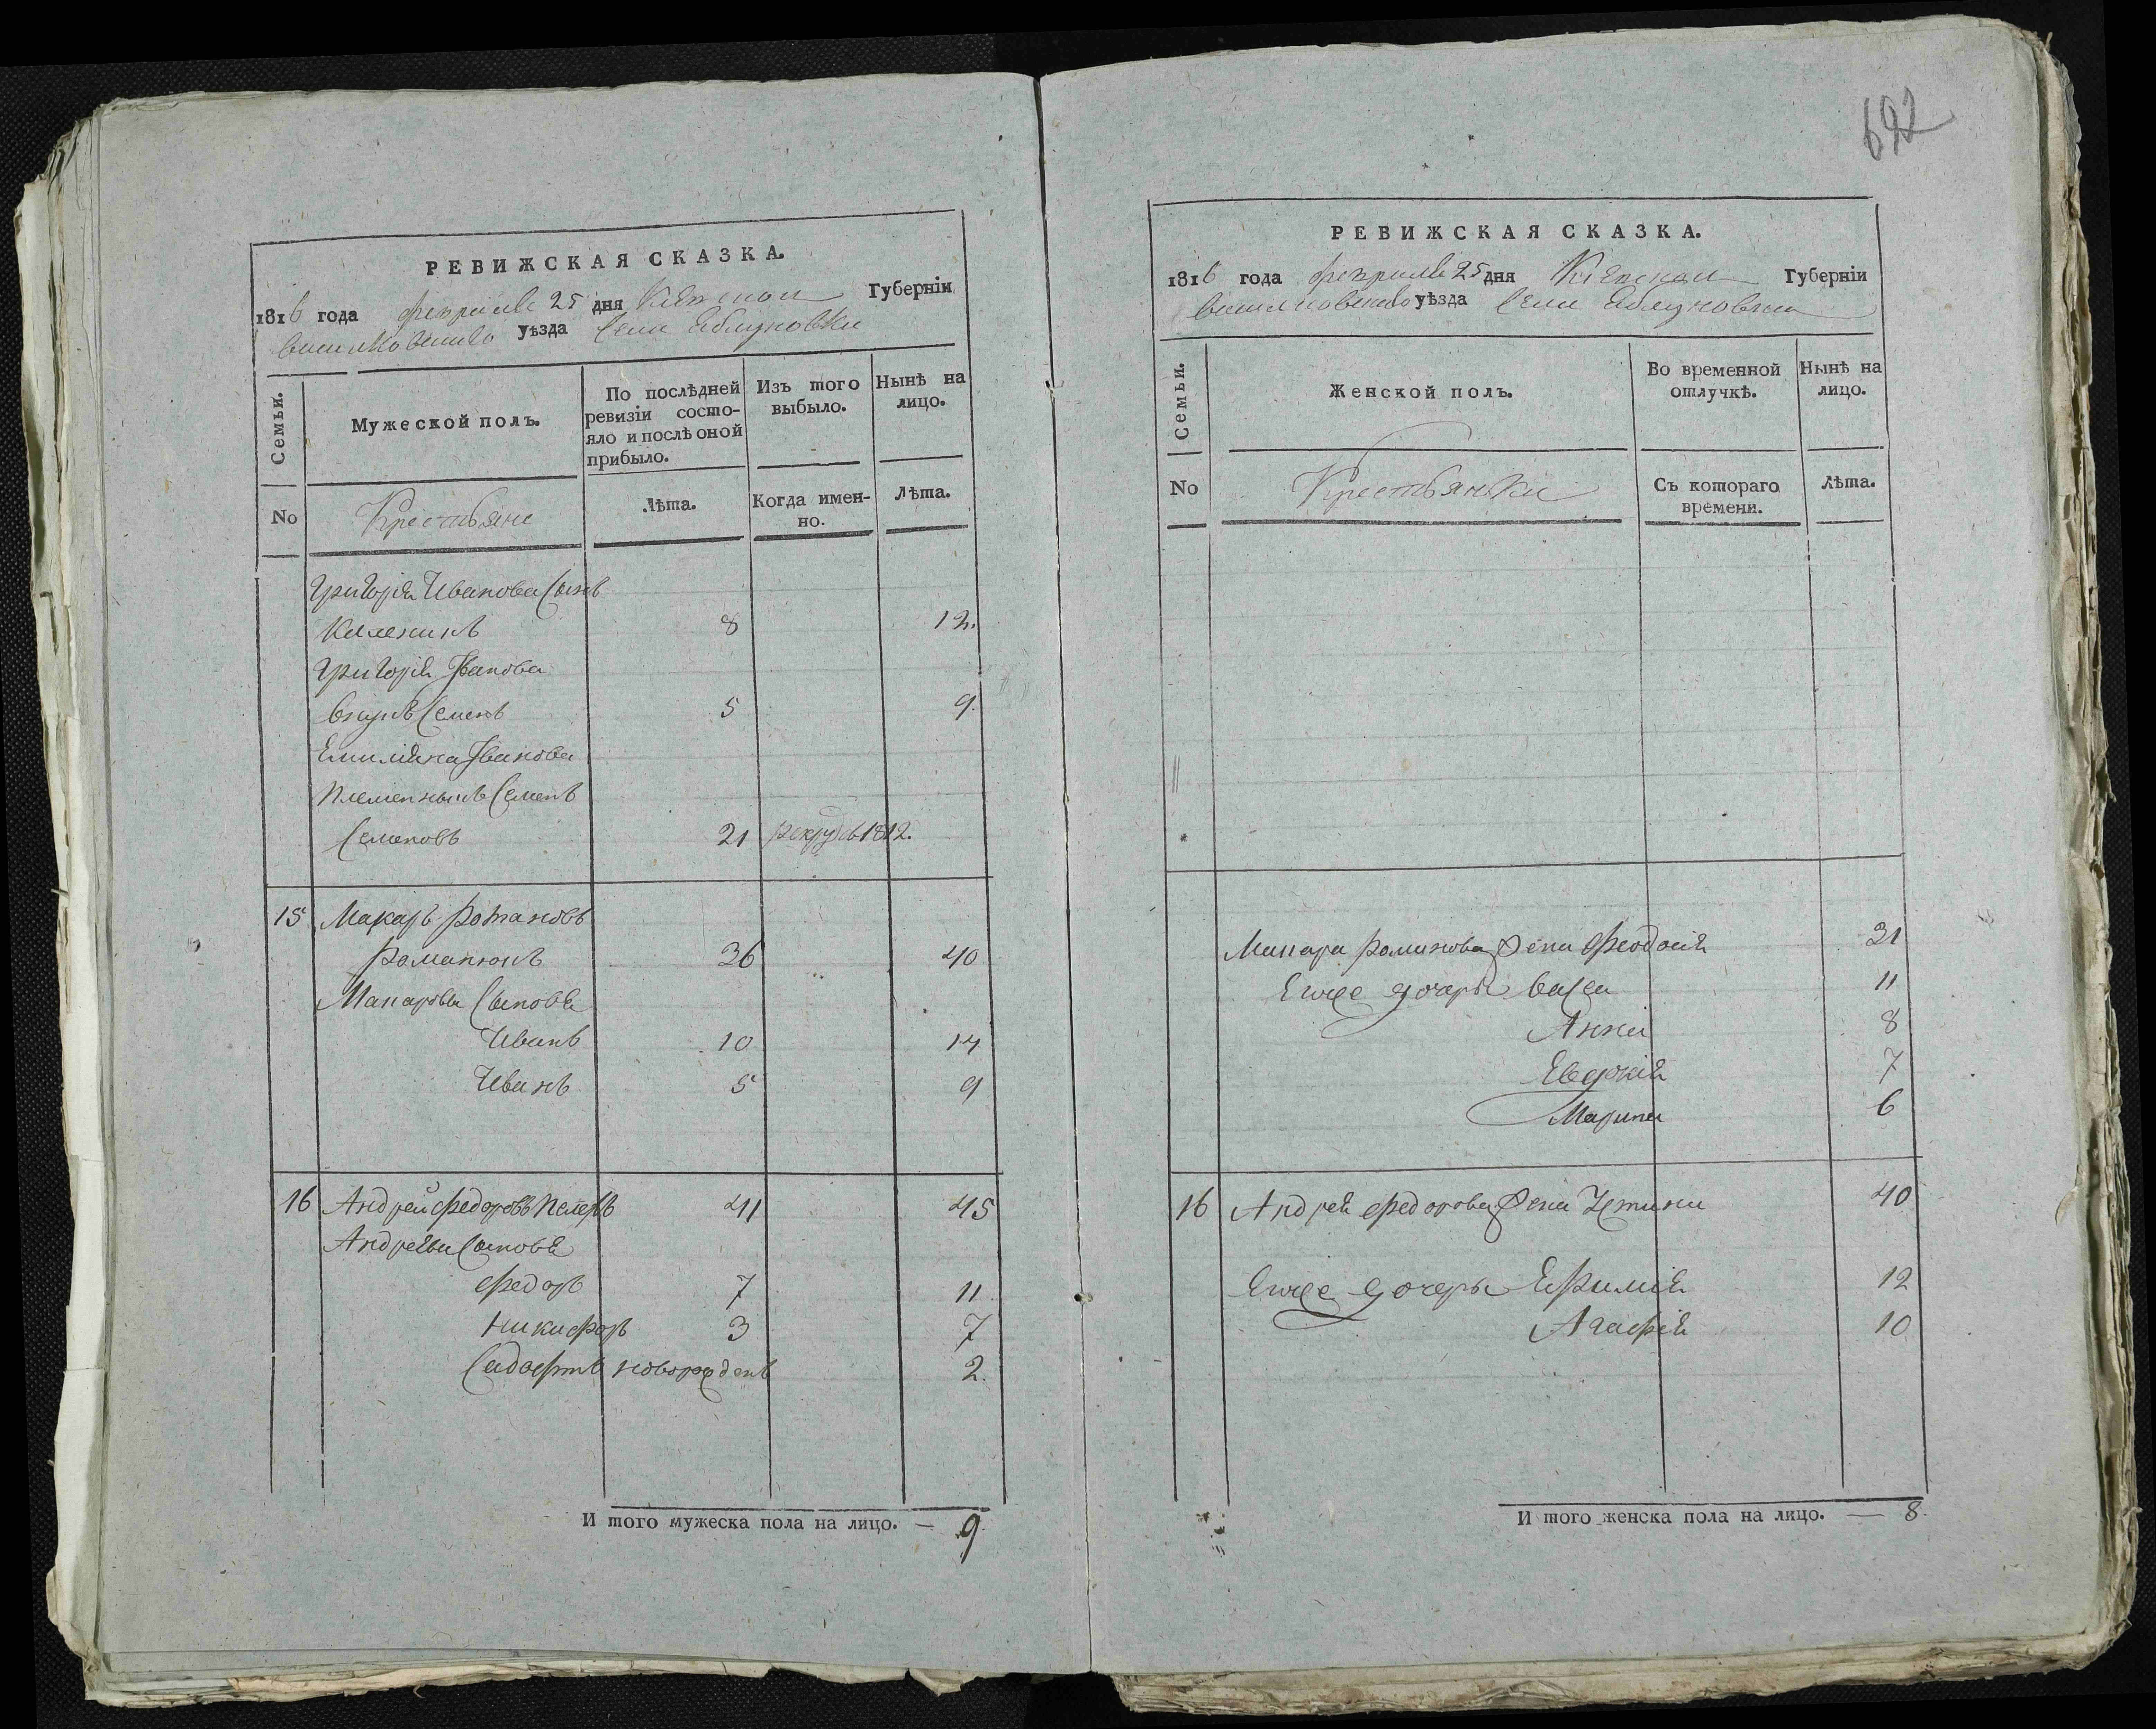 РЕВИЖСКАЯ СКАЗКА.
1816 года февраля 25 дня Кіевской Губерніи
Васильковскаго уѣзда Села Яблуновки
Семьи.
Мужеской полъ.
По послѣдней ревизіи состо-
яло и послѣ оной прибыло.
Изъ того выбыло.
Нынѣ на лицо.
No
Крестьяне
Лѣта.
Когда имен-
но.
Лѣта.
Григорія Иванова Сынъ
Каленикъ 8 12.
Григорія Іванова
Внукъ Семенъ 5 9.
Емиліяна Іванова
Племенныкъ Семенъ
Семеновъ 21 рекрут въ 1812.
15 Макаръ Романовъ
Романюкъ 36 40
Макаровы Сыновя
Иванъ 10 14
Иванъ 5 9
16 Андрей Федоровъ 41 45
Андреевы Сыновя
Федоръ 7 11
Никифоръ 3 7
новорожденъ 2.
И того мужеска пола на лицо. — 9.
692
РЕВИЖСКАЯ СКАЗКА.
1816 года февраля 25 дня Кіевской Губерніи
Васильковскаго уѣзда Села Яблуновки
Семьи.
Женской полъ.
Во временной отлучкѣ.
Нынѣ на лицо.
No
Крестьянки
Съ котораго времени.
Лѣта.
Макара Романова Жена Феодосія 31
Ихже дочеры Васса 11
Анна 8
Евдокія 7
Марина 6
16 Андрея Федорова Жена 40
Ихже дочеры Ефимія 12
Агафія 10
И того женска пола на лицо. — 8.